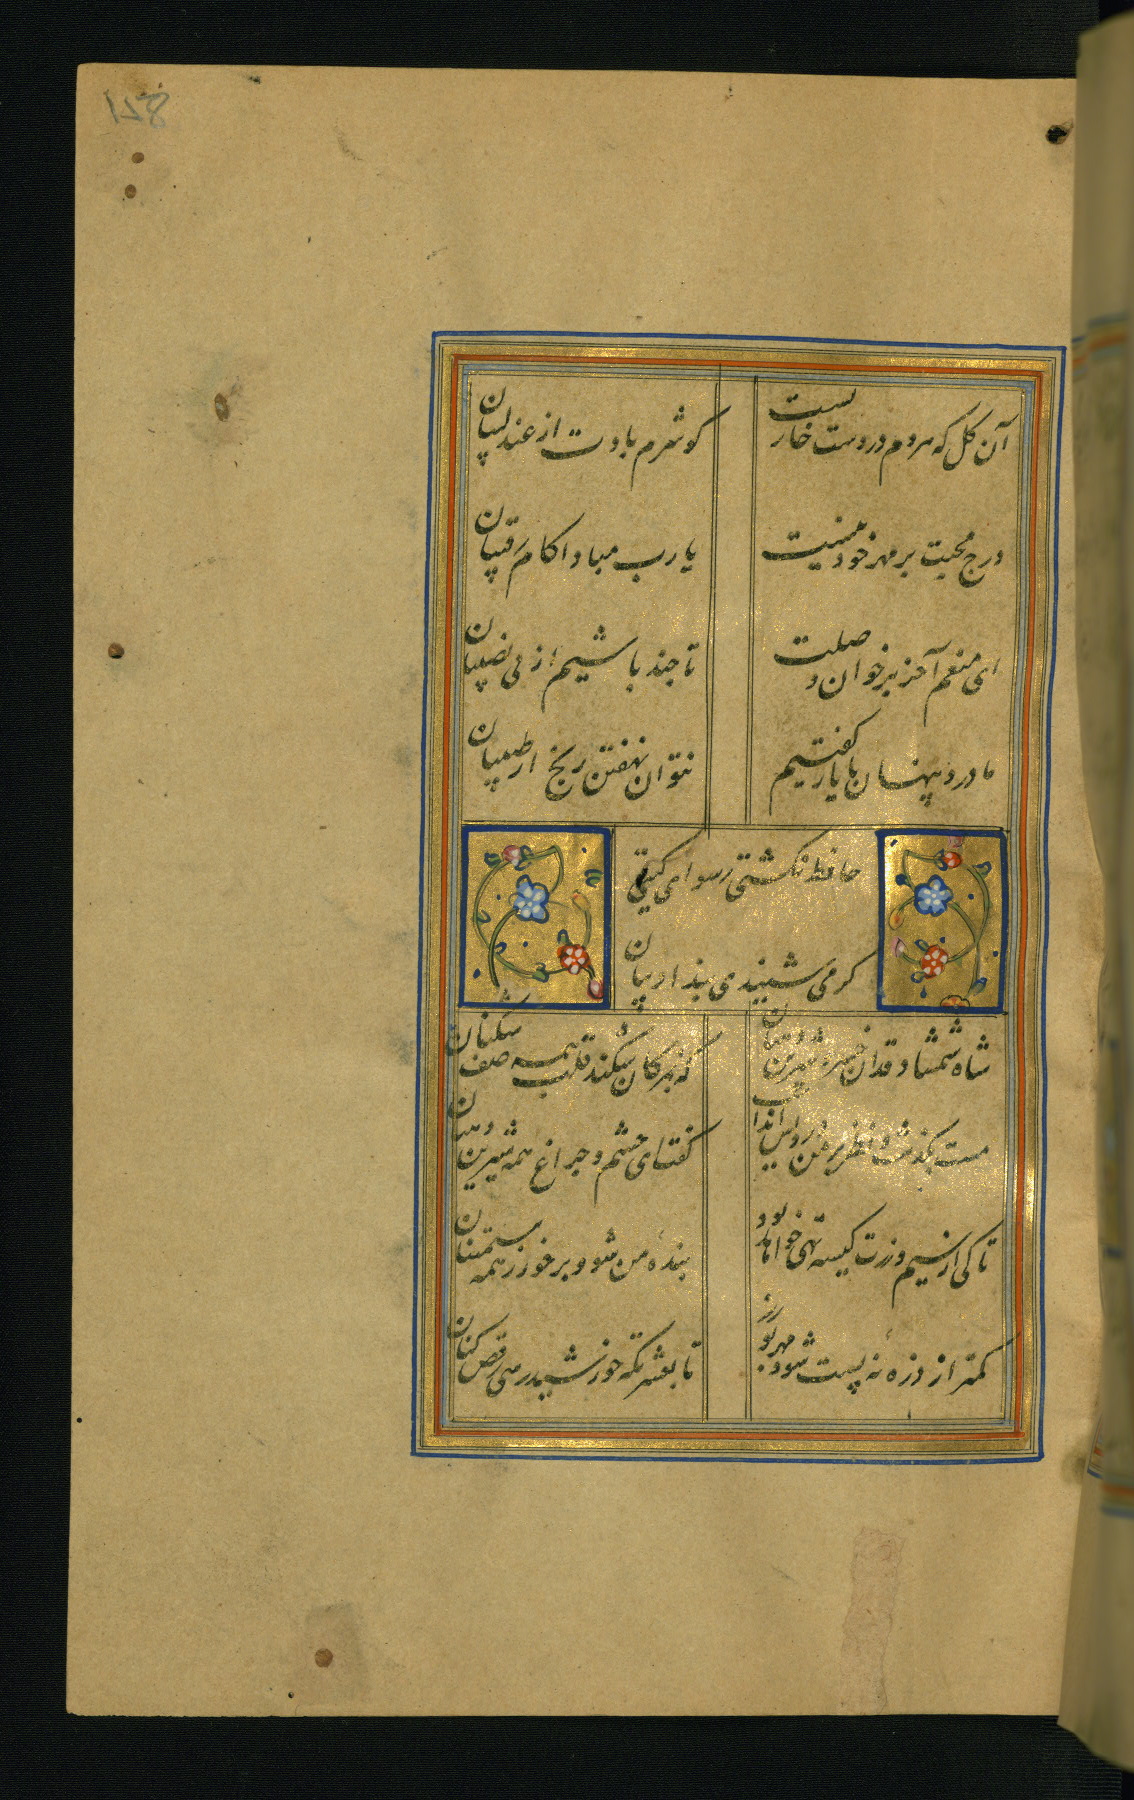 آن کل که هردم در دست خاریست
کو شرم بادت از عندلیبان
درج محبت بر مهر خود نیست
یا رب مبادا کام رقیبان
ای منعم آخر بر خوان وصلت
تا چند باشیم از بی نصیبان
ما درد پنهان با یار کفتیم
نتوان نهفتن رنج از طبیبان
حافظ نکشتی رسوای کیتی
کر می شنیدی پند ادیبان
شاه شمشاد قدان خسرو شیرین دهنان
که بمژکان شکند قلب همه صف شکنان
مست بکذشت و نظر بر من درویش انداخت
کفت ای چشم و چراغ همه شیرین دهنان
تا کی از سیم و زرت کیسه تهی خواهد بود
بنده من شو و بر خور ز همه سیمتنان
کمتر از ذره نه پست مشو مهر بورز
تا بخلوتکه خورشید رسی رقص کنان